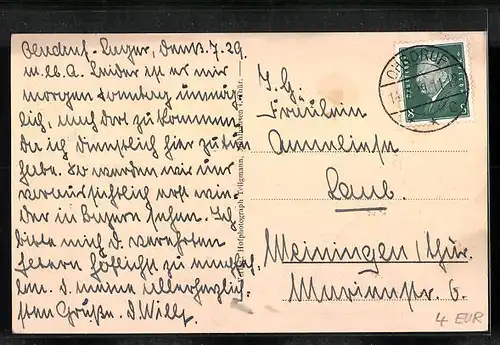 Ohrdruf-Lager, den 13.7.29.
m. lb. A. Leider ist es mir
morgen Sonntag unmög-
lich, nach dort zu kommen
da ich dienstlich hier zu tun
habe. So werden wir uns
voraussichtlich erst wie-
der in Bayern sehen. Ich
bitte mich d. verehrten
Eltern höflichst zu empfeh-
len. D. meine allerherzlich-
sten Grüße. D. Willy.
Hofphotograph Tellgmann, Mühlhausen i. Thür.
I. H.
Fräulein
Anneliese
Laub.
Meiningen/Thür.
Marienstr. 6.
OHRDRUF
8 8
4 EUR